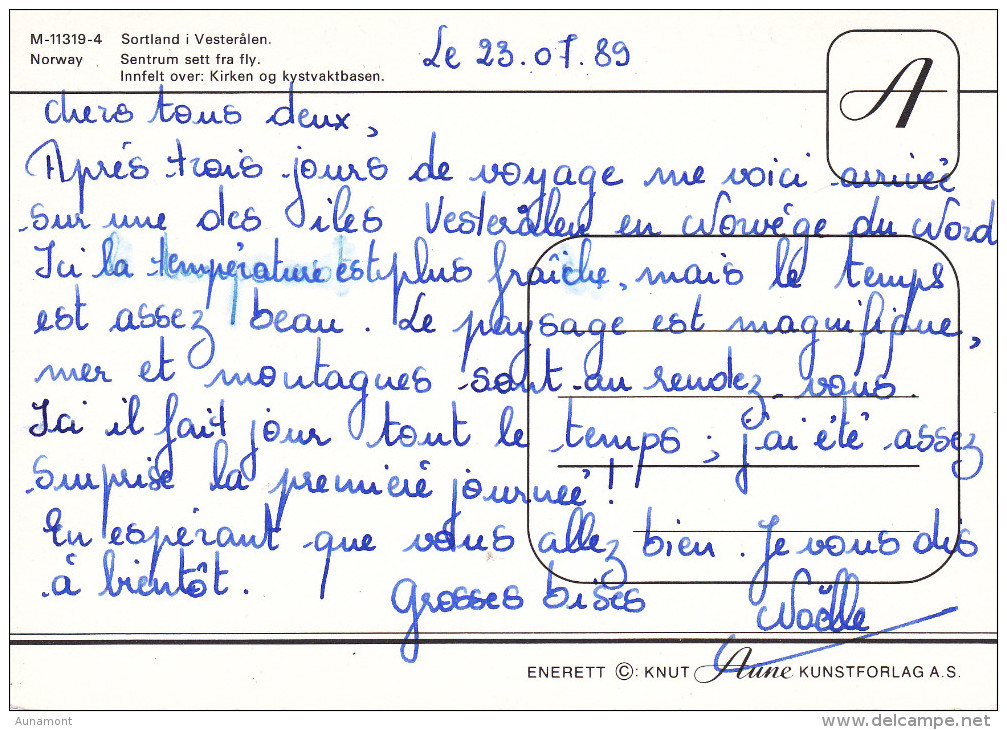 M-11319-4 Sortland i Vesterålen.
Norway Sentrum sett fra fly.
Innfelt over: Kirken og kystvaktbasen.
Le 23.07.89
A
Chers tous deux,
Après trois jours de voyage me voici arrivée
sur une des îles Vesterålen en Norvège du Nord
Ici la température est plus fraîche, mais le temps
est assez beau. Le paysage est magnifique,
mer et montagnes sont au rendez-vous.
Ici il fait jour tout le temps ; j'ai été assez
surprise la première journée !
En espérant que vous allez bien. Je vous dis
à bientôt. Grosses bises
Naëlle
ENERETT ©: KNUT Aune KUNSTFORLAG A.S.
Aunamont
www.delcampe.net